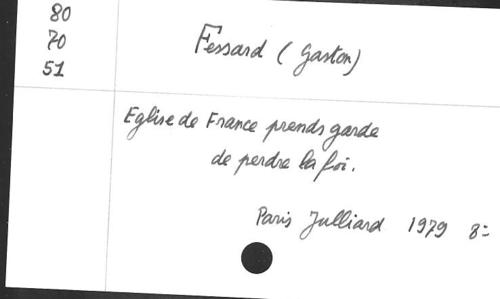 80
70
51
Fessard (Gaston)
Eglise de France prends garde
de perdre la foi.
Paris Julliard 1979 8=